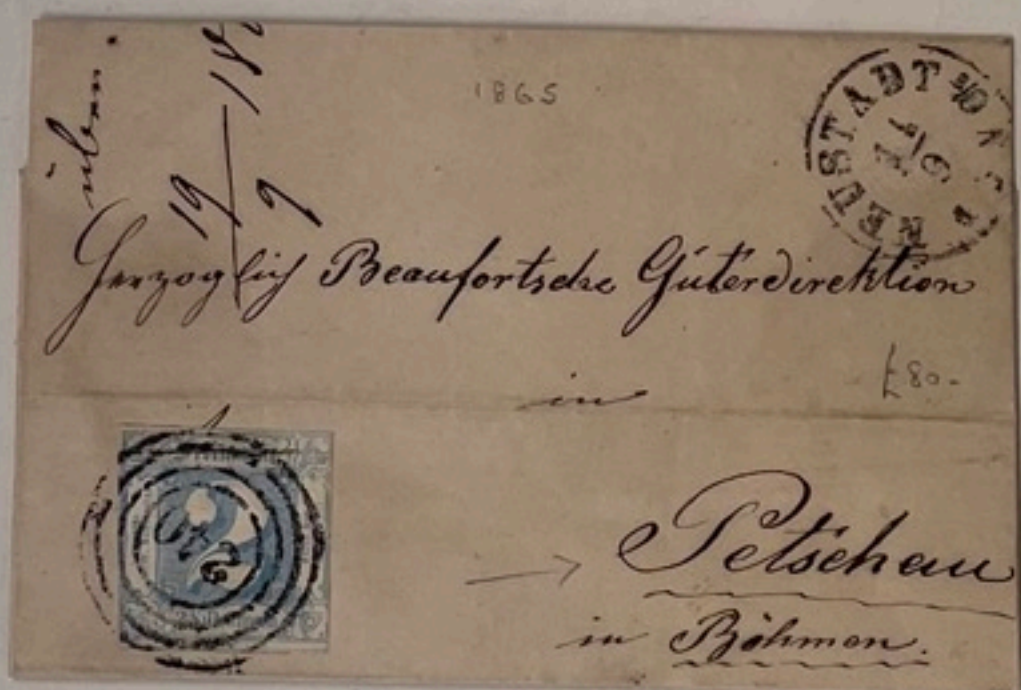 1865
NEUSTADT
19/9 18
Herzoglich Beaufortsche Güterdirektion
£80-
in
240
2
Petschau
in Böhmen.